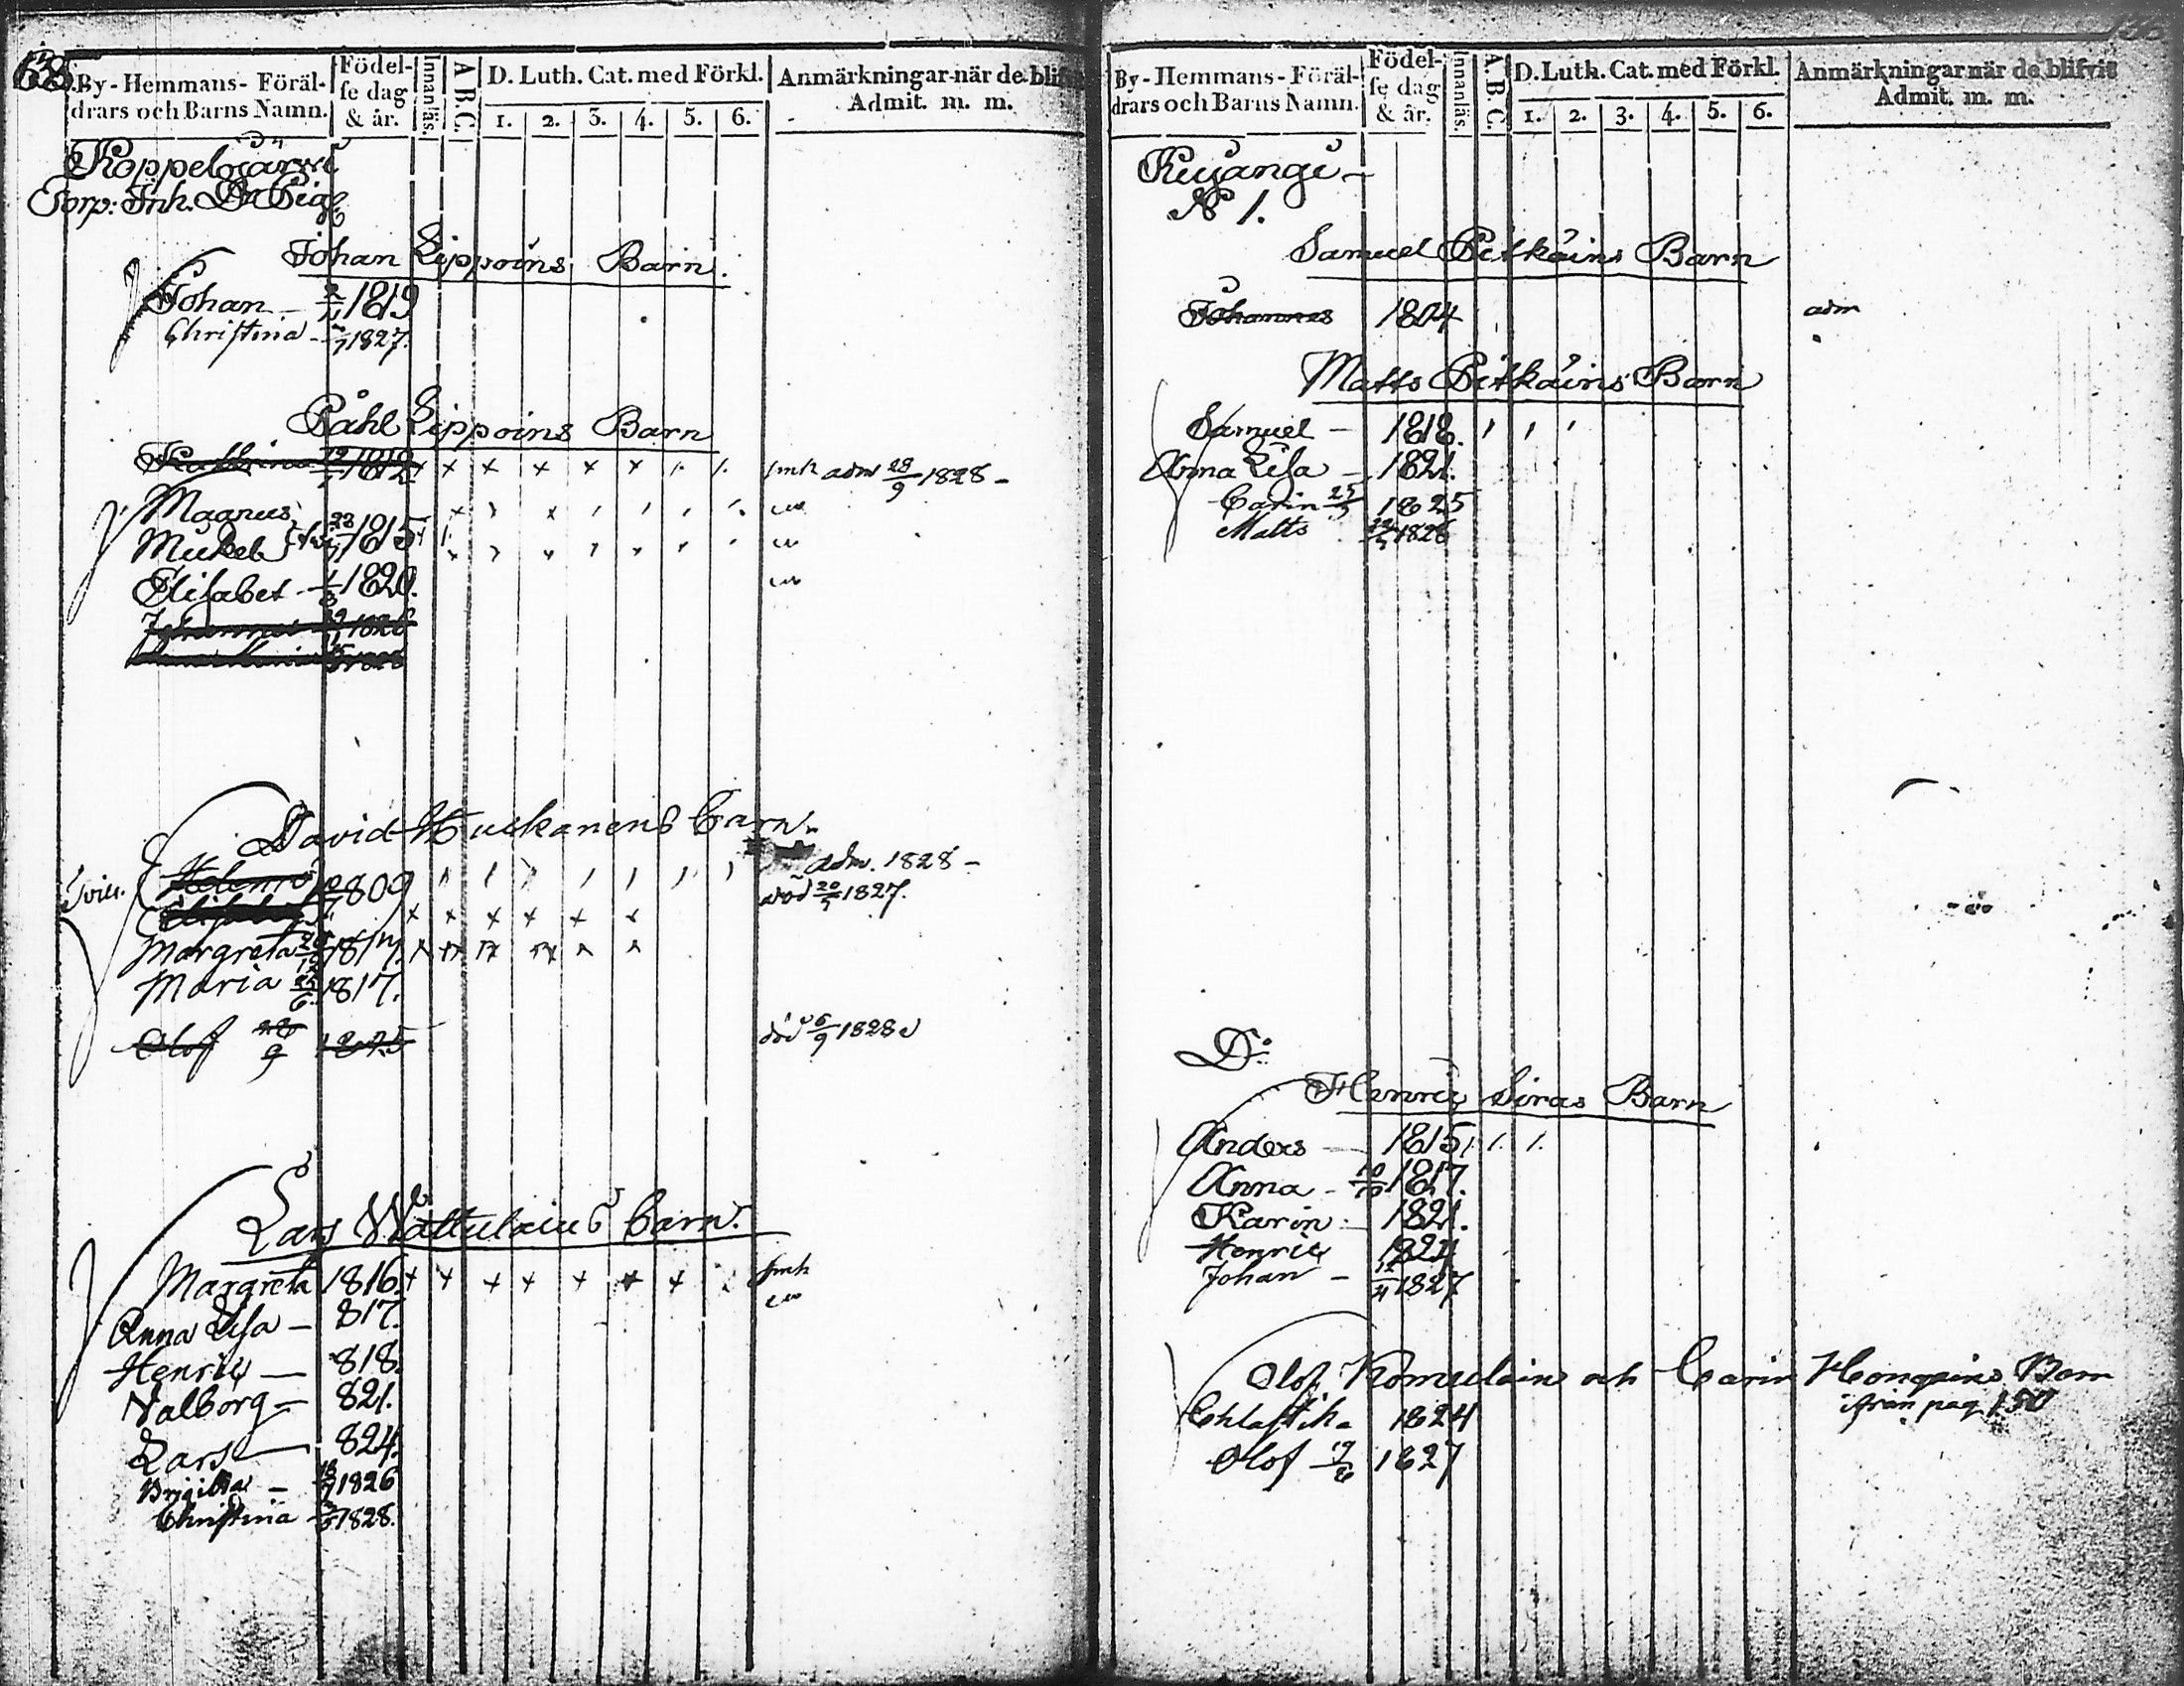 By-Hemmans-Föräl-
drars och Barns Namn.
Födel-
se dag
& år.
Innanläs.
A B C.
D. Luth. Cat. med Förkl.
1. 2. 3. 4. 5. 6.
Anmärkningar när de blif
Admit. m. m.
Koppelojärvi
Torp: Inh.
Johan Lippoins Barn.
Johan 1819
Christina 1827.
Påhl Lippoins Barn
1812 adm 28/9 1828
Magnus
Mickel 1815
Elisabet 1820.
David Huskanens Barn.
809 adm. 1828
död 1827.
Margreta
Maria 1817.
Olof 1825 död 6/9 1828
Lars Wattulains Barn.
Margreta 1816
Anna Lisa 817.
Henric 818.
Valborg 821.
Lars 824.
Brigitta 1826
Christina 1828.
By-Hemmans-Föräl-
drars och Barns Namn.
Födel-
se dag
& år.
Innanläs.
A. B. C.
D. Luth. Cat. med Förkl.
1. 2. 3. 4. 5. 6.
Anmärkningar när de blifvit
Admit. m. m.
Kuyangi
N 1.
Samuel Pitkäins Barn
Johannes 1804 adm
Matts Pitkäins Barn
Samuel 1818.
Anna Lisa 1821.
Carin 1825
Matts 1826
D:o
Henric Siras Barn
Anders 1815
Anna 10/10 1817.
Karin 1821.
Henric 1824
Johan 12/4 1827
Olof Komulain och Carin Barn
ifrån pag. 150
1824
Olof 1827